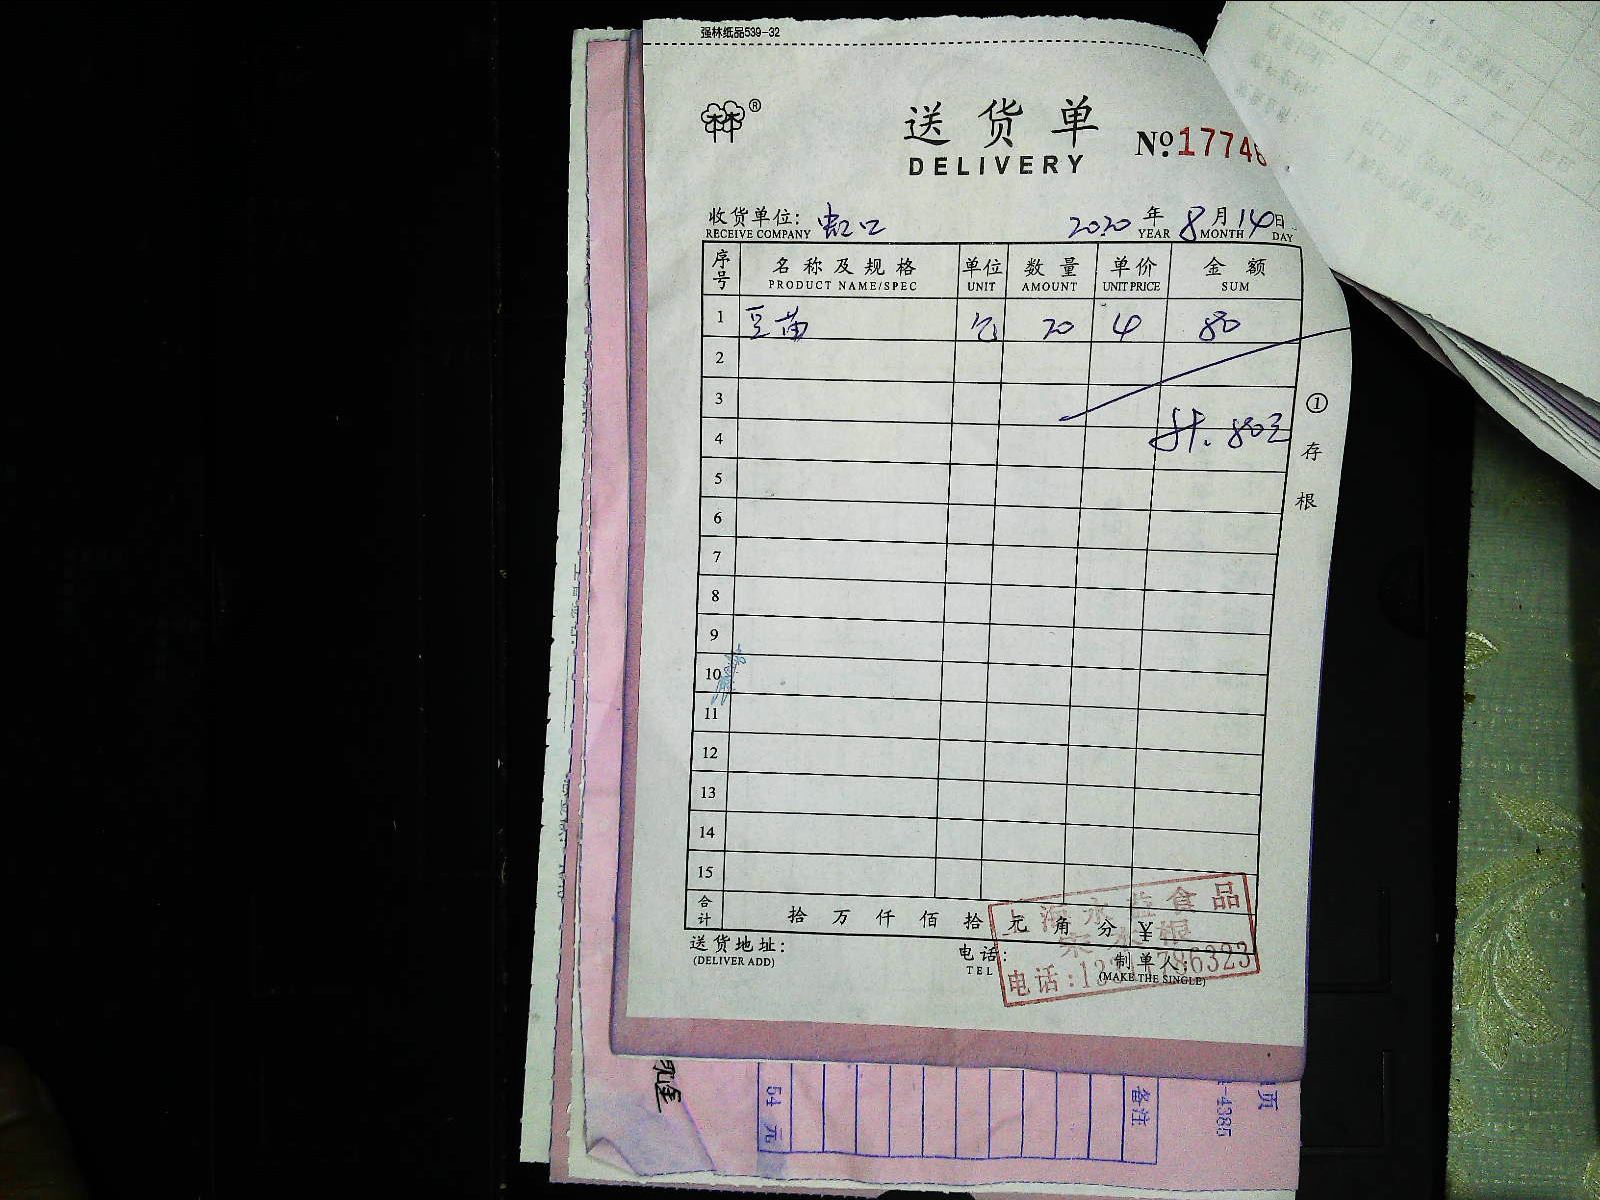 强林纸品539-32
林®
送货单
DELIVERY
№ 17746
收货单位: 虹口 2020 年 8 月 14 日
RECEIVE COMPANY YEAR MONTH DAY
序号 名称及规格 单位 数量 单价 金额
PRODUCT NAME/SPEC UNIT AMOUNT UNIT PRICE SUM
1 豆苗 包 20 4 80
2
3
4 计. 80元
5
6
7
8
9
10
11
12
13
14
15
① 存根
合计 拾 万 仟 佰 拾 元 角 分 ¥
上海永益食品
送货地址: 电话: 制单人:
(DELIVER ADD) TEL (MAKE THE SINGLE)
电话:133 786323
54 元
备注
-4385
页